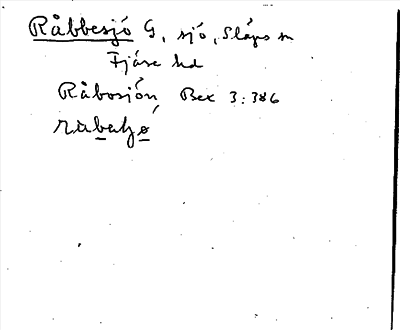 Råbbesjö G, sjö, Släps sn
Fjäre hd
Råbosjön, Bex 3:386